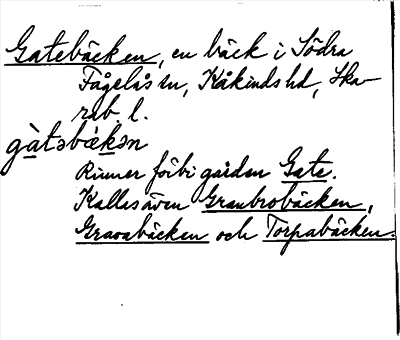 Gatebäcken, en bäck i Södra
Fågelås sn, Kåkinds hd, Ska-
rab. l.
gàtəbǽkən
Rinner förbi gården Gate.
Kallas även Granbrobäcken,
Gravabäcken och Torpabäcken.